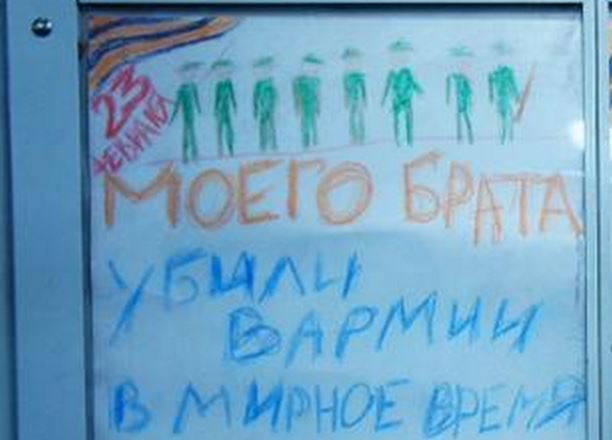 23
ФЕВРАЛЯ
МОЕГО БРАТА
УБИЛИ
В АРМИИ
В МИРНОЕ ВРЕМЯ